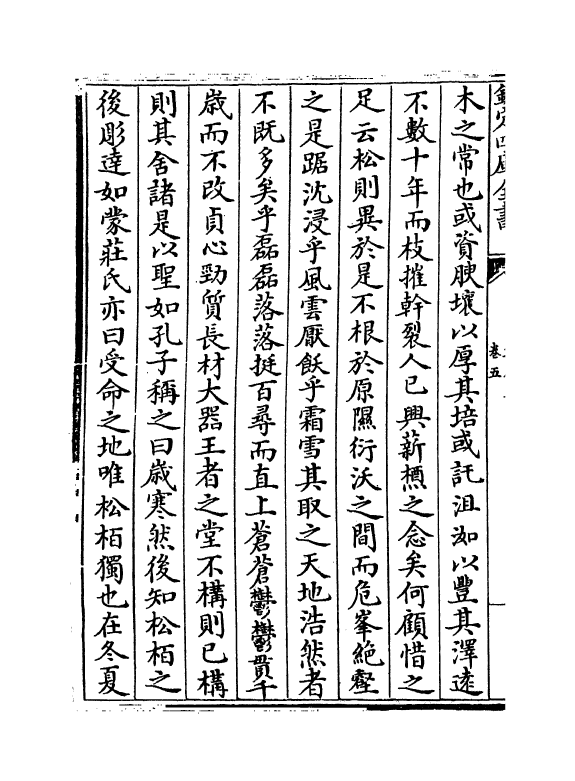 欽定四庫全書
卷五
木之常也或資腴壤以厚其培或託沮洳以豐其澤逺
不數十年而枝摧幹裂人已興薪槱之念矣何顧惜之
足云松則異於是不根於原隰衍沃之間而危峯絶壑
之是踞沈浸乎風雲厭飫乎霜雪其取之天地浩然者
不既多矣乎磊磊落落挺百尋而直上蒼蒼鬱鬱貫千
歲而不改貞心勁質長材大器王者之堂不構則已構
則其舍諸是以聖如孔子稱之曰歲寒然後知松栢之
後彫達如蒙莊氏亦曰受命之地唯松栢獨也在冬夏